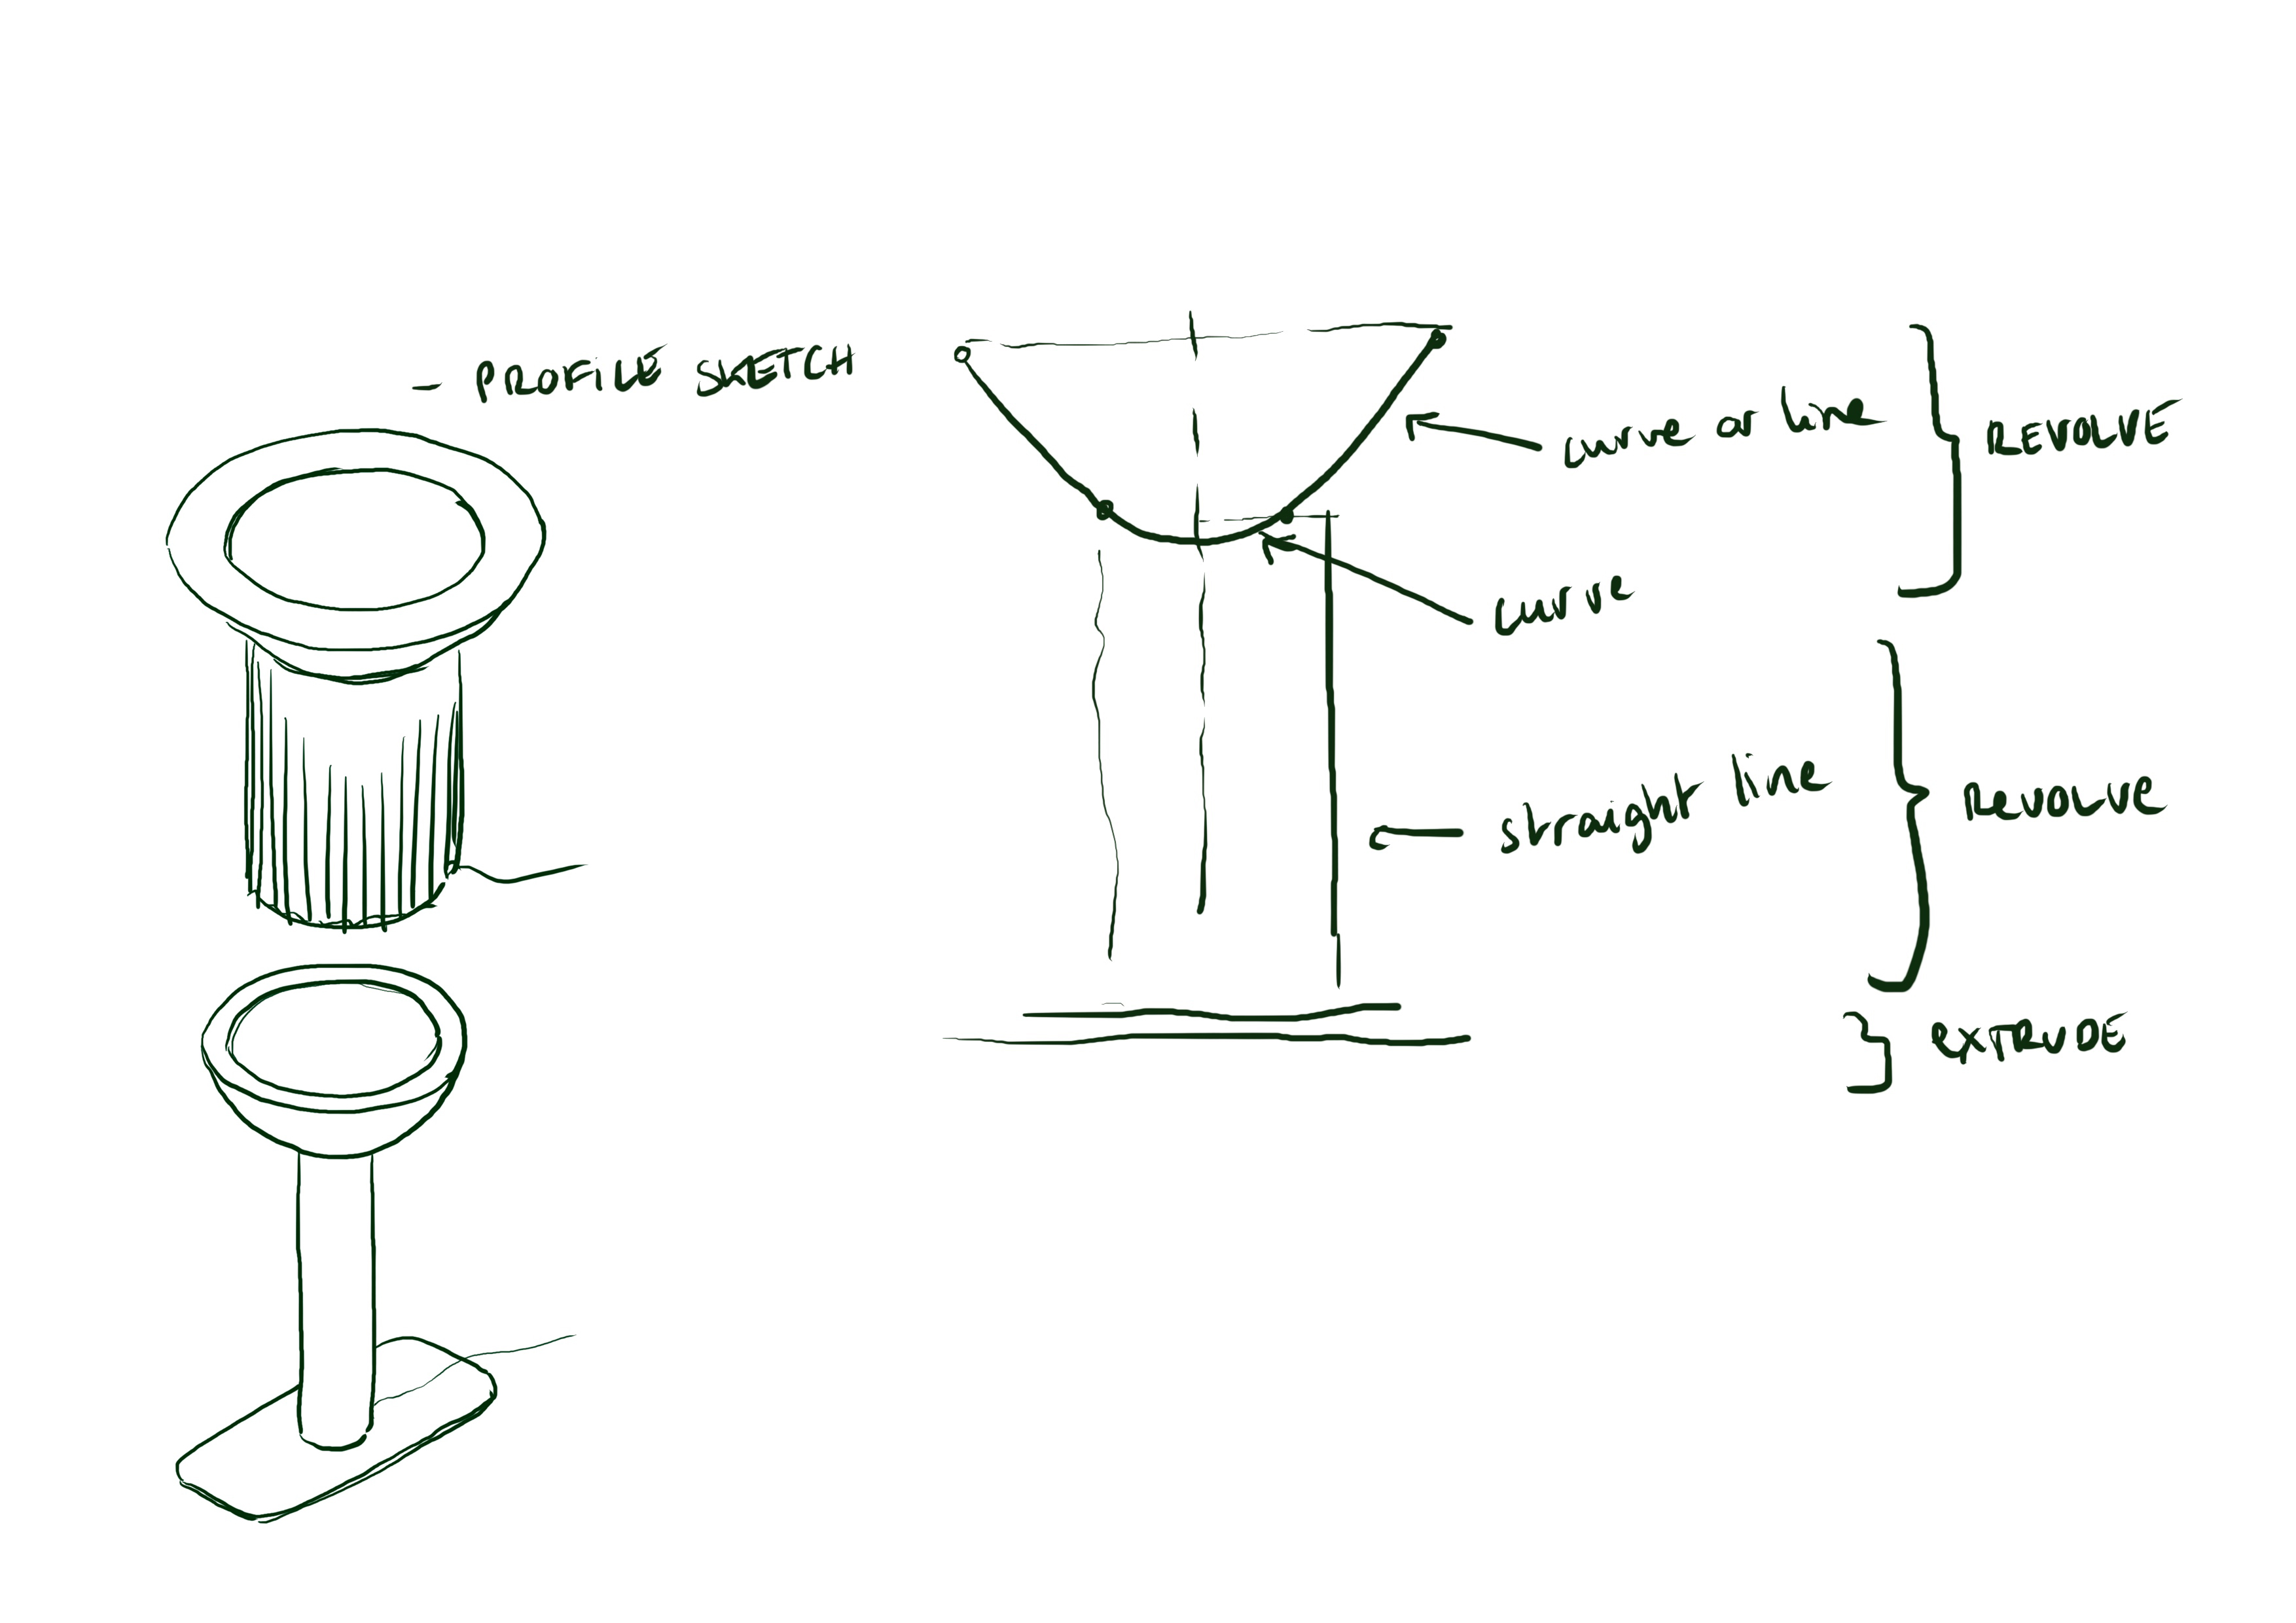 - PROFILE SKETCH
curve or line
REVOLVE
curve
straight line
REVOLVE
EXTRUDE